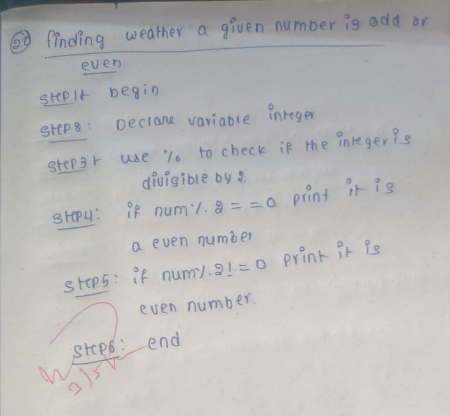 20 finding weather a given number is odd or
even
step1: begin
step2: Declare variable integer
step3: use % to check if the integer is
divisible by 2.
step4: if num%.2==0 print it is
a even number
step5: if num%.2!=0 print it is
even number.
step6: end
3/5